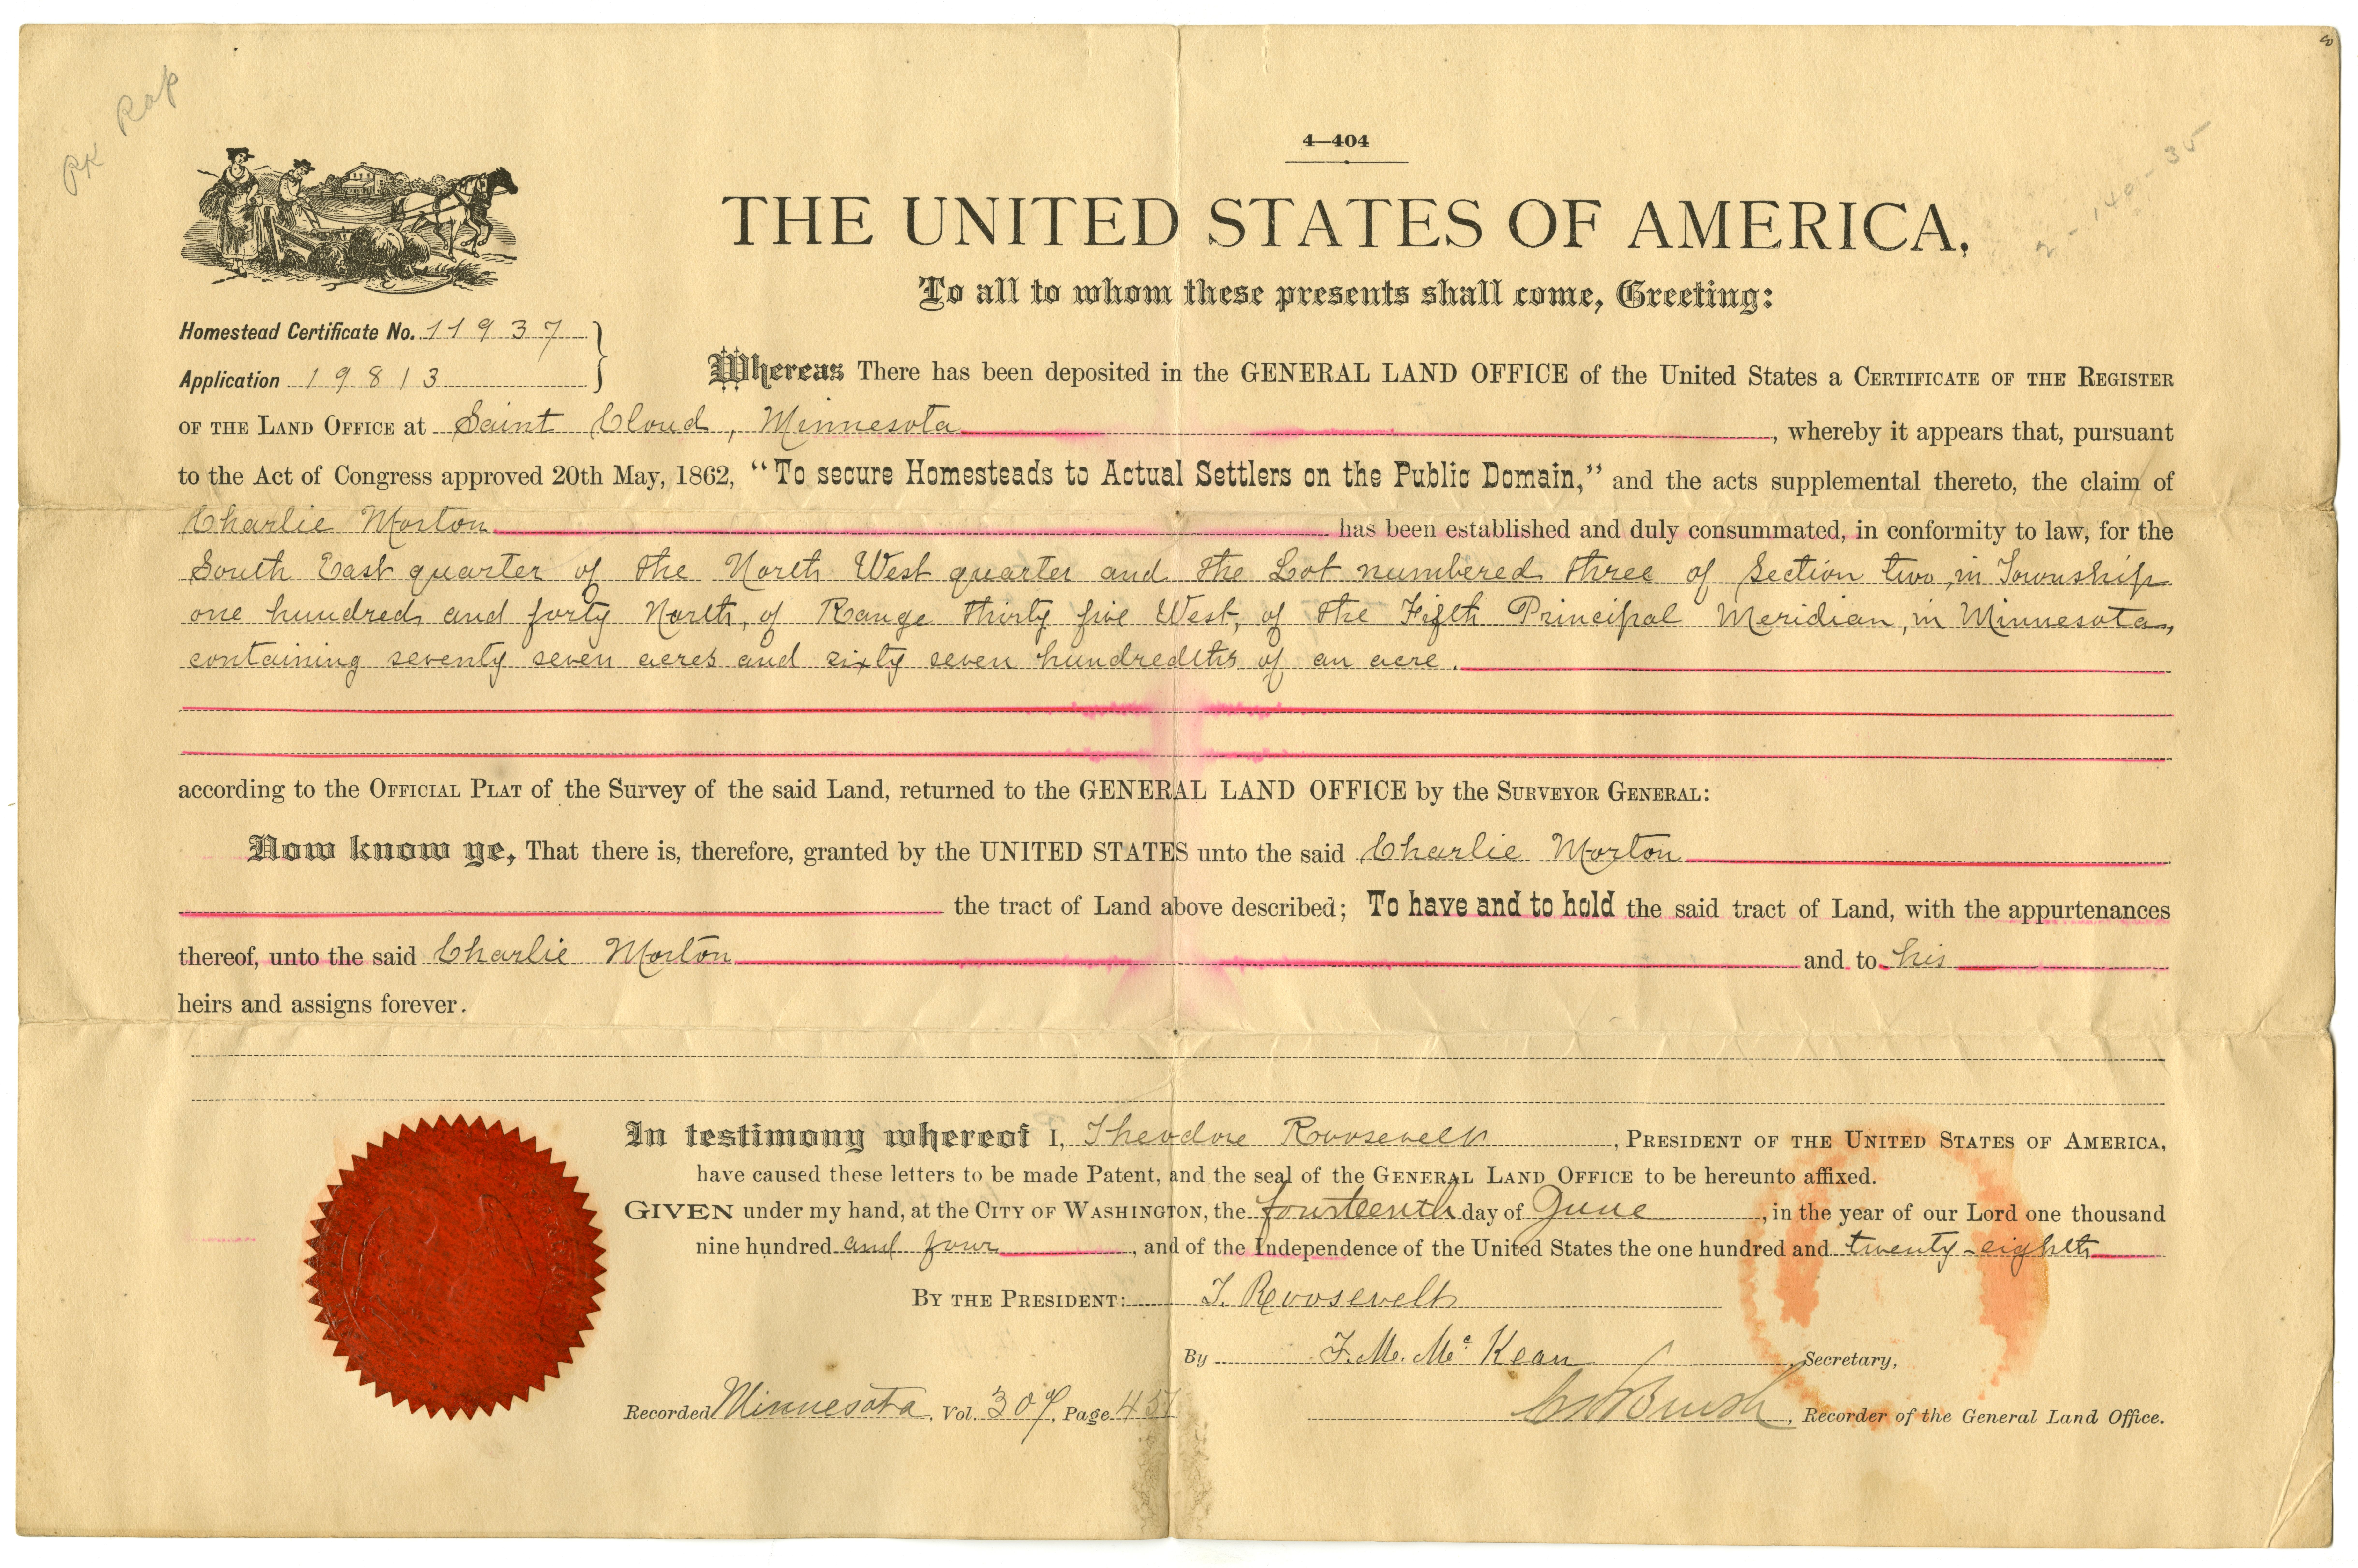 PK Rap
8
4—404
2 - 140 - 35
THE UNITED STATES OF AMERICA,
To all to whom these presents shall come, Greeting:
Homestead Certificate No. 11937
Application 19813
Whereas There has been deposited in the GENERAL LAND OFFICE of the United States a CERTIFICATE OF THE REGISTER
OF THE LAND OFFICE at Saint Cloud, Minnesota, whereby it appears that, pursuant
to the Act of Congress approved 20th May, 1862, “To secure Homesteads to Actual Settlers on the Public Domain,” and the acts supplemental thereto, the claim of
Charlie Morton has been established and duly consummated, in conformity to law, for the
South East quarter of the North West quarter and the Lot numbered three of Section two, in Township
one hundred and forty North, of Range thirty five West, of the Fifth Principal Meridian, in Minnesota,
containing seventy seven acres and sixty seven hundredths of an acre.
according to the OFFICIAL PLAT of the Survey of the said Land, returned to the GENERAL LAND OFFICE by the SURVEYOR GENERAL:
Now know ye, That there is, therefore, granted by the UNITED STATES unto the said Charlie Morton
the tract of Land above described; To have and to hold the said tract of Land, with the appurtenances
thereof, unto the said Charlie Morton and to his
heirs and assigns forever.
In testimony whereof I, Theodore Roosevelt, PRESIDENT OF THE UNITED STATES OF AMERICA,
have caused these letters to be made Patent, and the seal of the GENERAL LAND OFFICE to be hereunto affixed.
GIVEN under my hand, at the CITY OF WASHINGTON, the fourteenth day of June, in the year of our Lord one thousand
nine hundred and four, and of the Independence of the United States the one hundred and twenty-eighth
BY THE PRESIDENT: T. Roosevelt
By F. M. McKean Secretary,
Recorded Minnesota, Vol. 307, Page 451
Recorder of the General Land Office.